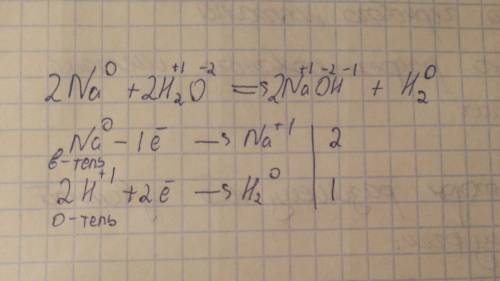 2Na⁰ + 2H₂⁺¹O⁻² => 2Na⁺¹O⁻²H⁻¹ + H₂⁰
Na⁰ - 1ē → Na⁺¹ | 2
в-тель
2H⁺¹ + 2ē → H₂⁰ | 1
о-тель